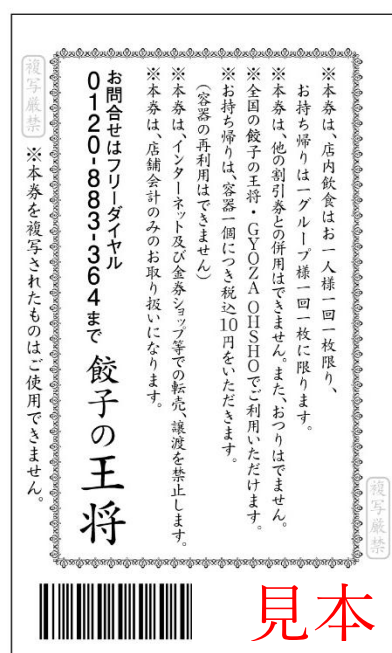 ※本券は、店内飲食はお一人様一回一枚限り、
お持ち帰りは一グループ様一回一枚に限ります。
※本券は、他の割引券との併用はできません。また、おつりはでません。
※全国の餃子の王将・GYOZA OHSHOでご利用いただけます。
※お持ち帰りは、容器一個につき税込10円をいただきます。
(容器の再利用はできません)
※本券は、インターネット及び金券ショップ等での転売、譲渡を禁止します。
※本券は、店舗会計のみのお取り扱いになります。
お問合せはフリーダイヤル
0120-883-364まで
餃子の王将
複写厳禁
※本券を複写されたものはご使用できません。
複写厳禁
見本